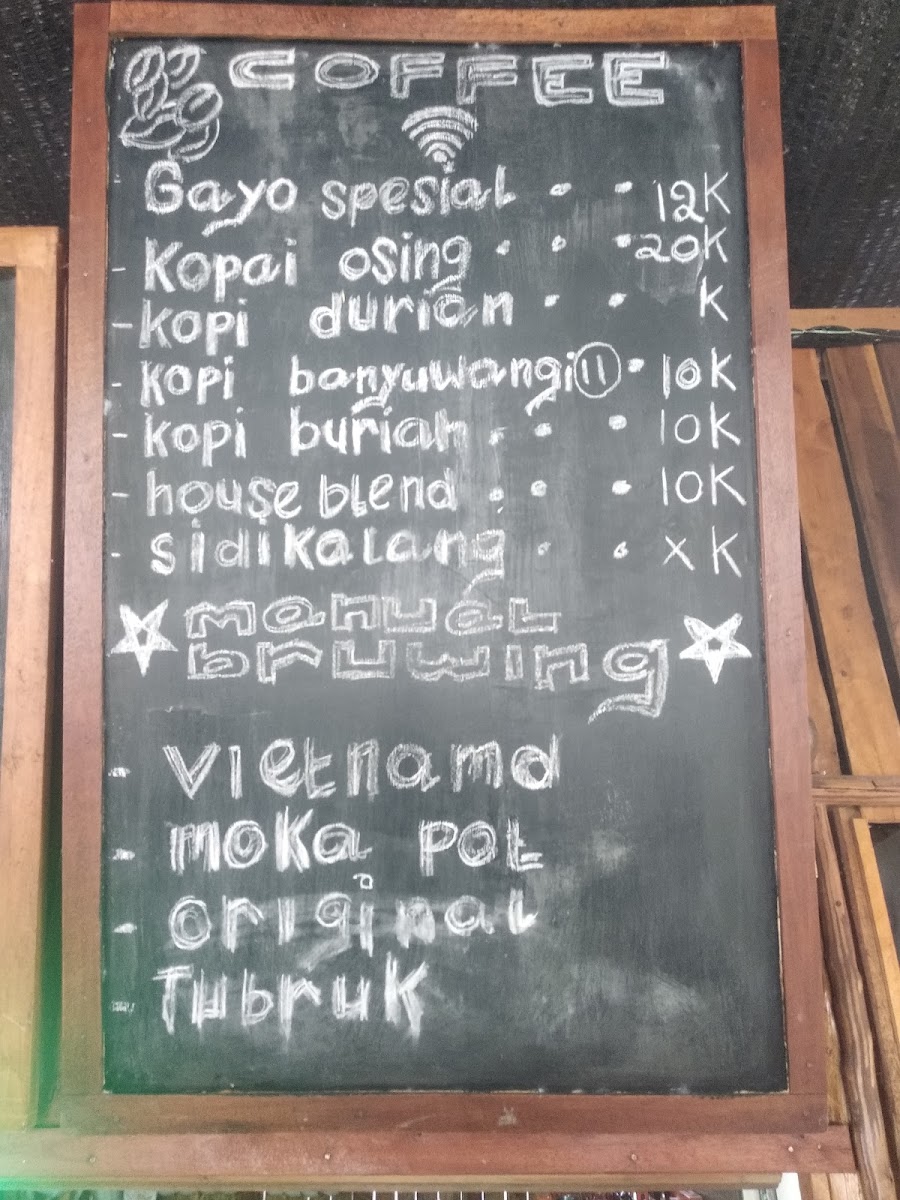 COFFEE
Gayo spesial . . 12K
- Kopai osing . . . 20K
- kopi durian . . K
- kopi banyuwangi 11 . 10K
- kopi buriah . . . 10K
- house blend . . . 10K
- sidikalang . . x K
manual
bruwing
- vietnamd
- moka pot
- original
- Tubruk